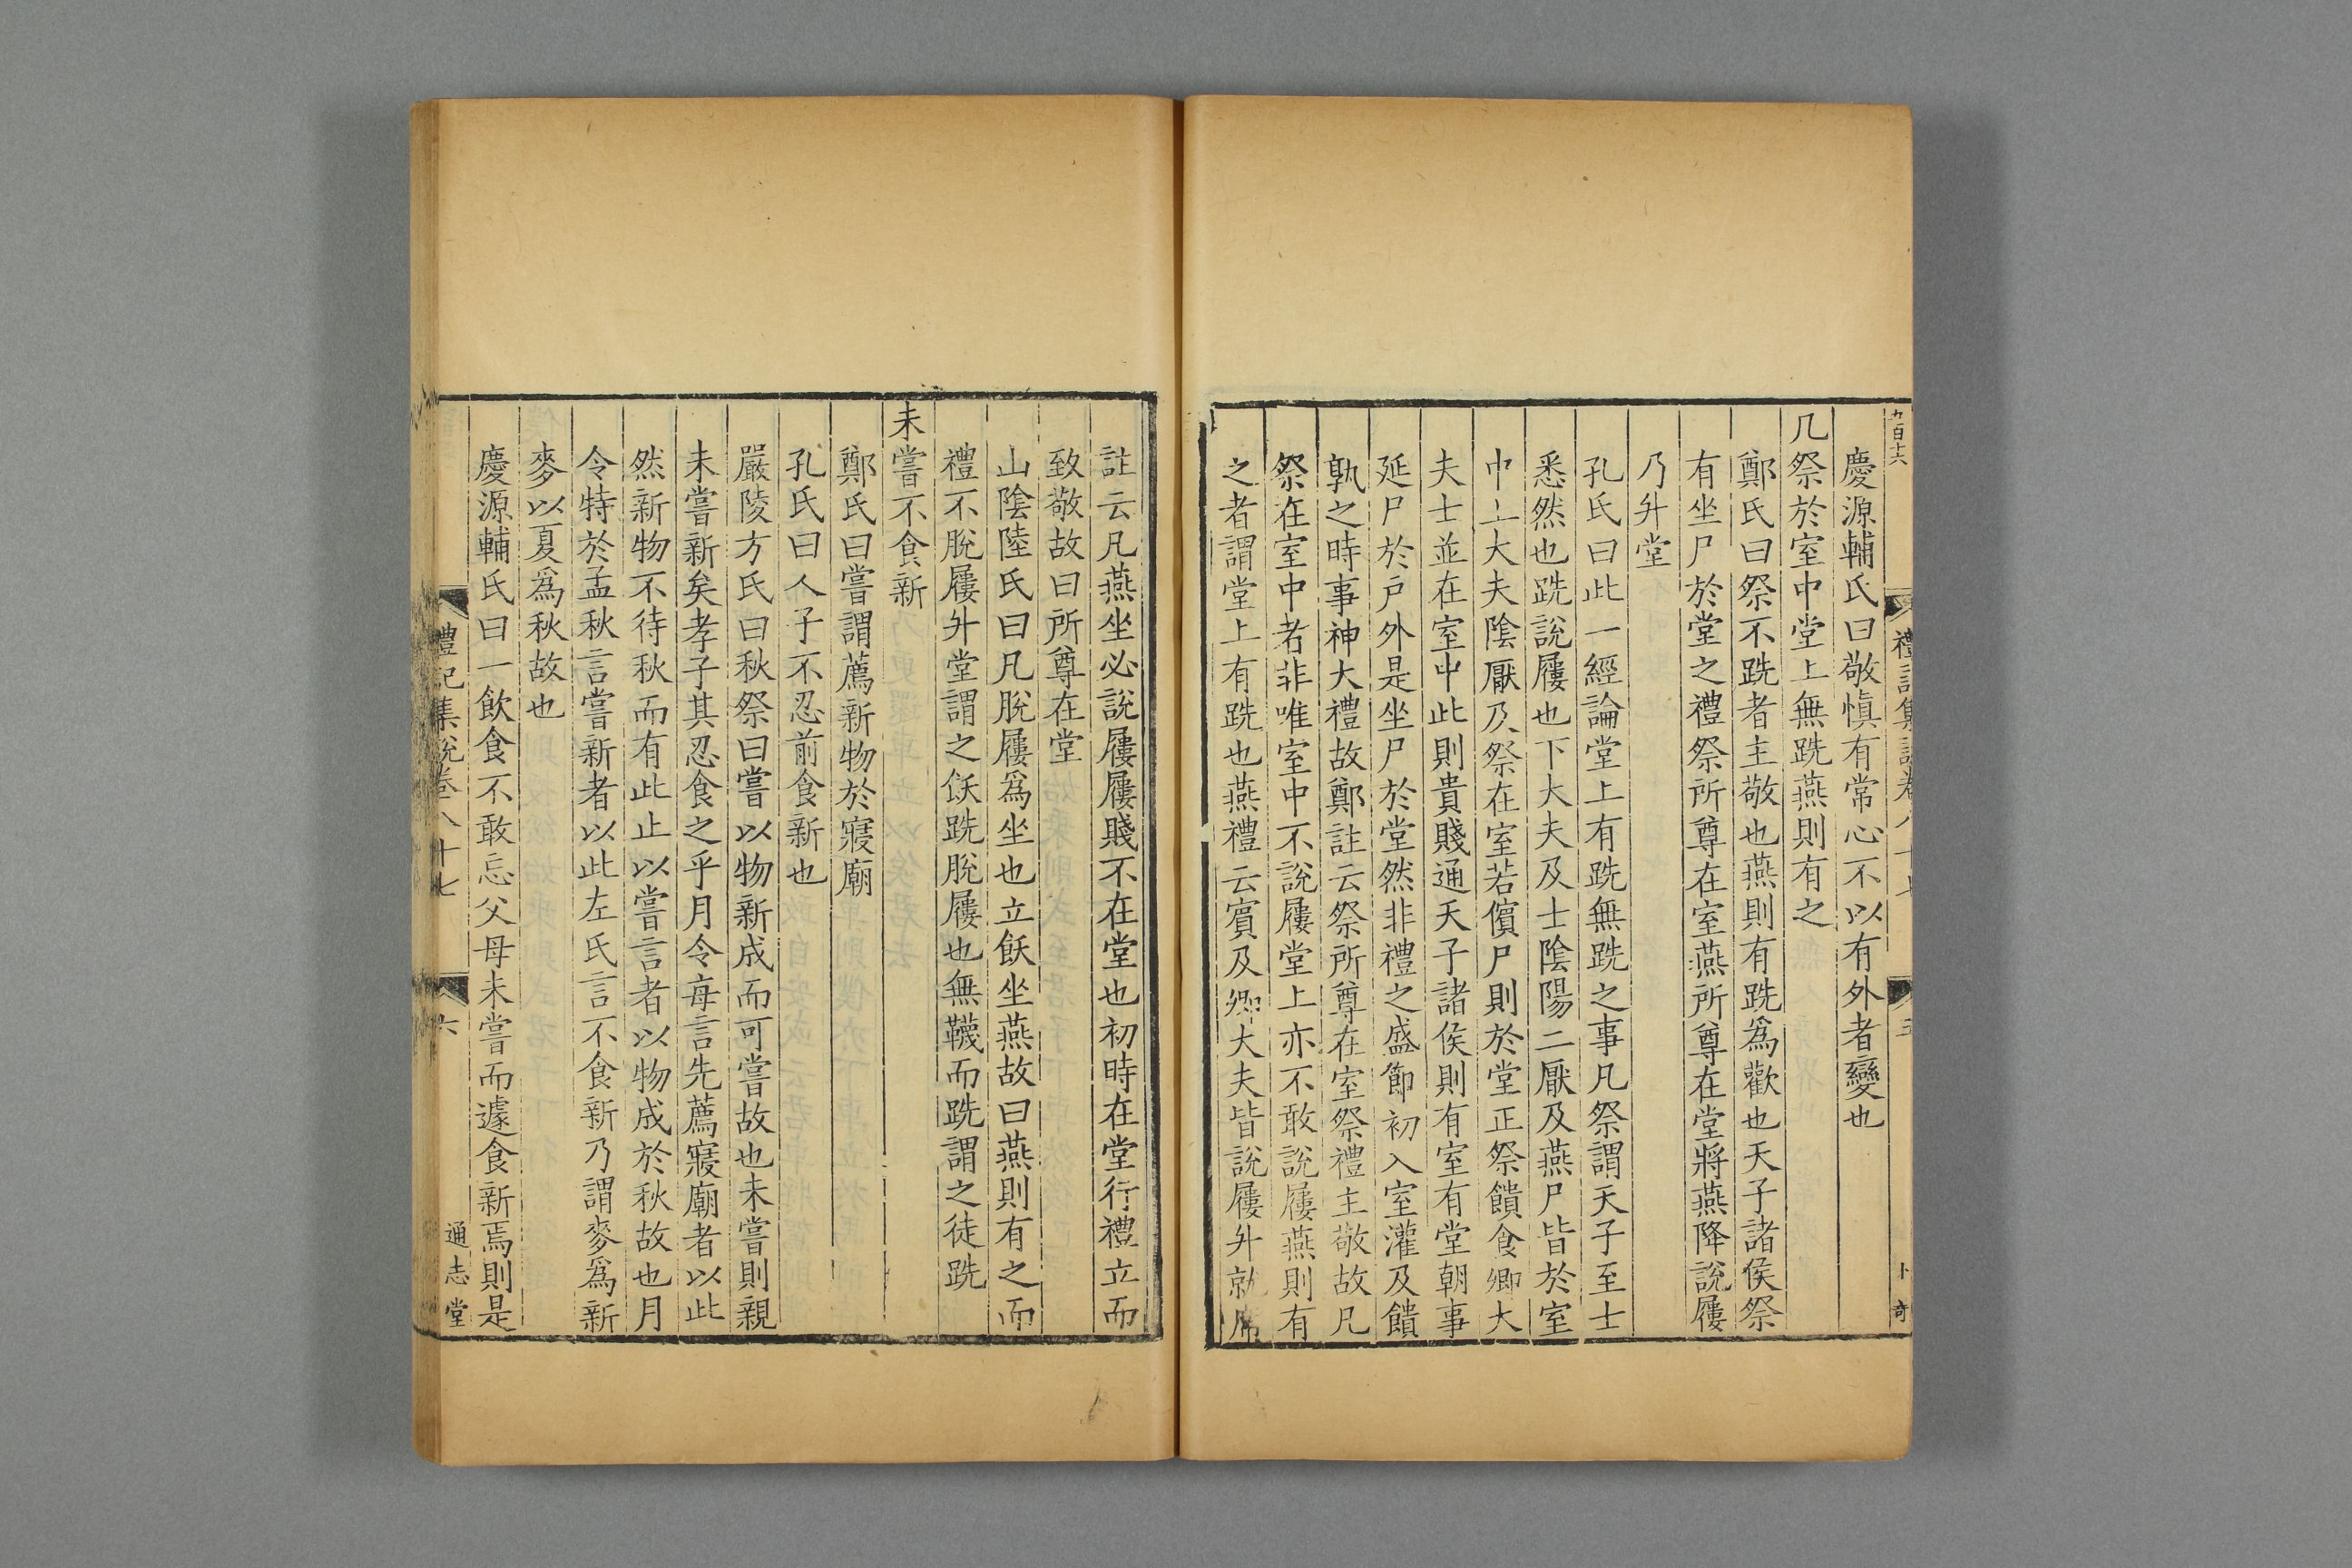 九百十六
禮記集說卷八十七
五
卜
奇
慶源輔氏曰敬慎有常心不以有外者變也
凡祭於室中堂上無跣燕則有之
鄭氏曰祭不跣者主敬也燕則有跣爲歡也天子諸侯祭
有坐尸於堂之禮祭所尊在室燕所尊在堂將燕降說屨
乃升堂
孔氏曰此一經論堂上有跣無跣之事凡祭謂天子至士
悉然也跣說屨也下大夫及士陰陽二厭及燕尸皆於室
中上大夫陰厭及祭在室若儐尸則於堂正祭饋食卿大
夫士並在室中此則貴賤通天子諸侯則有室有堂朝事
延尸於戶外是坐尸於堂然非禮之盛節初入室灌及饋
孰之時事神大禮故鄭註云祭所尊在室祭禮主敬故凡
祭在室中者非唯室中不說屨堂上亦不敢說屨燕則有
之者謂堂上有跣也燕禮云賓及卿大夫皆說屨升就席
註云凡燕坐必說屨屨賤不在堂也初時在堂行禮立而
致敬故曰所尊在堂
山陰陸氏曰凡脫屨爲坐也立飫坐燕故曰燕則有之而
禮不脫屨升堂謂之飫跣脫屨也無韤而跣謂之徒跣
未嘗不食新
鄭氏曰嘗謂薦新物於寢廟
孔氏曰人子不忍前食新也
嚴陵方氏曰秋祭曰嘗以物新成而可嘗故也未嘗則親
未嘗新矣孝子其忍食之乎月令每言先薦寢廟者以此
然新物不待秋而有此止以嘗言者以物成於秋故也月
令特於孟秋言嘗新者以此左氏言不食新乃謂麥爲新
麥以夏爲秋故也
慶源輔氏曰一飲食不敢忘父母未嘗而遽食新焉則是
禮記集說卷八十七
六
通志堂